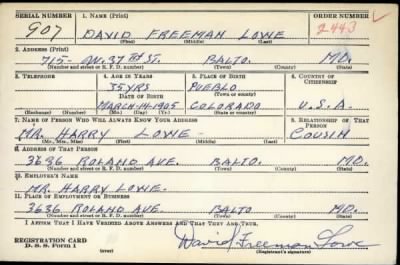 SERIAL NUMBER 1. NAME (Print) ORDER NUMBER
907 DAVID FREEMAN LOWE 2443
(First) (Middle) (Last)
2. ADDRESS (Print)
715- W. 37TH ST. BALTO. MD.
(Number and street or R. F. D. number) (Town) (County) (State)
3. TELEPHONE 4. AGE IN YEARS 5. PLACE OF BIRTH 6. COUNTRY OF CITIZENSHIP
35 YRS PUEBLO
DATE OF BIRTH (Town or county)
MARCH-14-1905 COLORADO U.S.A.
(Exchange) (Number) (Mo.) (Day) (Yr.) (State or country)
7. NAME OF PERSON WHO WILL ALWAYS KNOW YOUR ADDRESS 8. RELATIONSHIP OF THAT PERSON
MR. HARRY LOWE - COUSIN
(Mr., Mrs., Miss) (First) (Middle) (Last)
9. ADDRESS OF THAT PERSON
3636 ROLAND AVE. BALTO. MD.
(Number and street or R. F. D. number) (Town) (County) (State)
10. EMPLOYER'S NAME
MR. HARRY LOWE.
11. PLACE OF EMPLOYMENT OR BUSINESS
3636 ROLAND AVE. BALTO MD.
(Number and street or R. F. D. number) (Town) (County) (State)
I AFFIRM THAT I HAVE VERIFIED ABOVE ANSWERS AND THAT THEY ARE TRUE.
REGISTRATION CARD
D. S. S. Form 1 (over) David Freeman Lowe
(Registrant's signature)